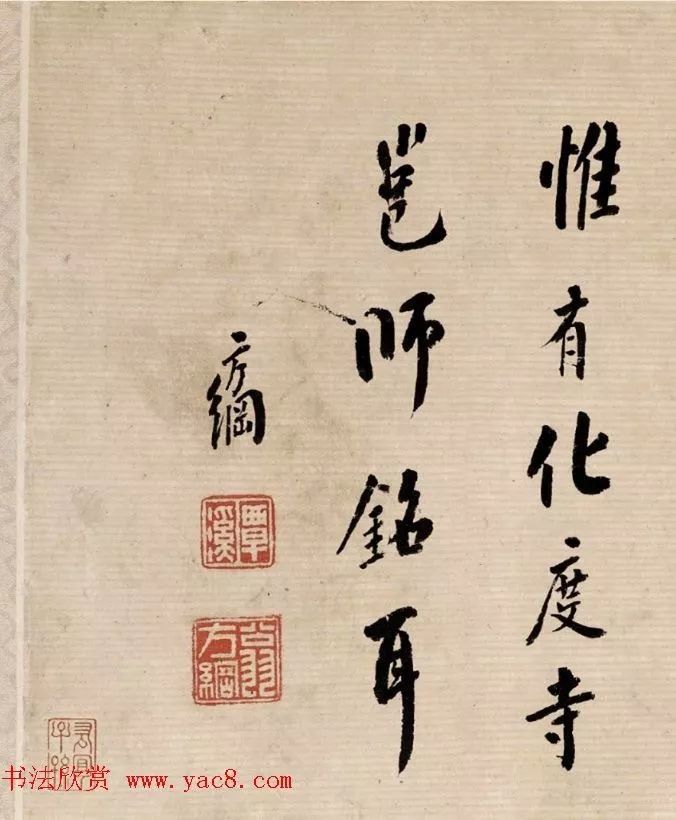 惟有化度寺
邕师銘耳
方綱
覃溪
翁方綱
书法欣赏 www.yac8.com